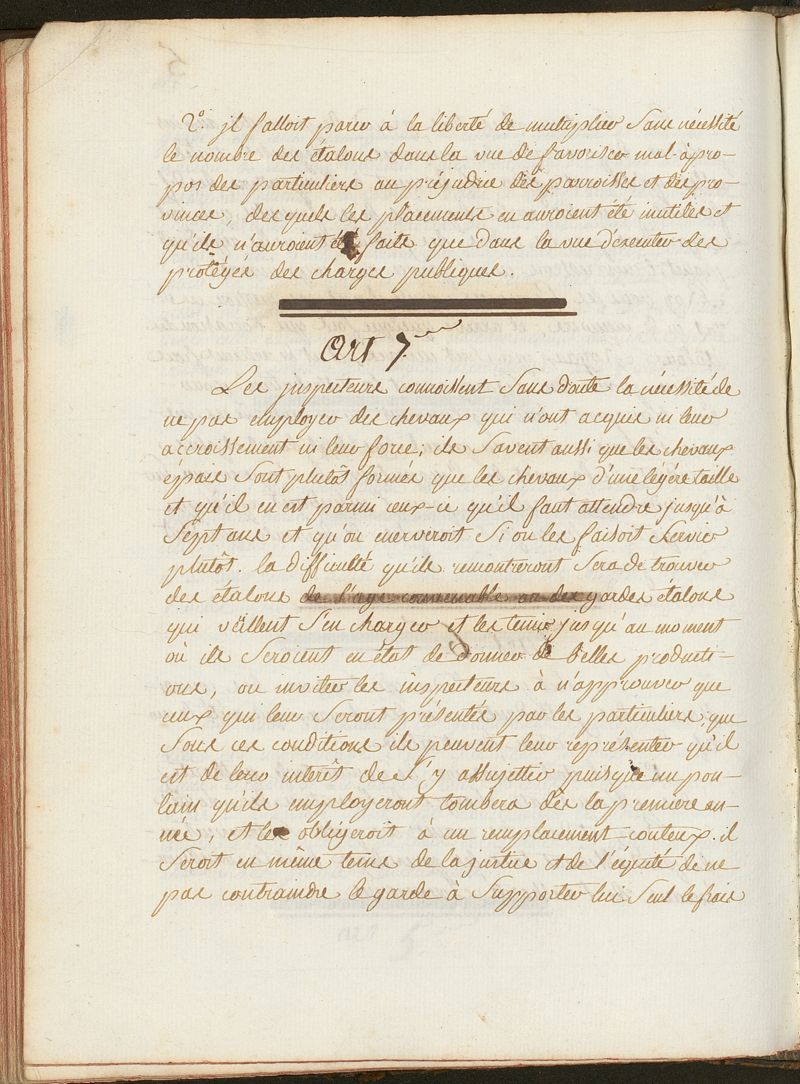 2°. jl falloit parer à la liberté de multiplier Sans nécessité
le nombre des étalons dans la vue de favoriser mal-àpro-
pos des particuliers au préjudice des parroisses et des pro-
vinces, desquels les placements en auroient été inutiles et
qu'ils n'auroient été faits que dans la vue d'exenter des
protégés des charges publiques.
Art 7.eme
Les jnspecteurs connoissent Sans doute la nécessité de
ne pas employer des chevaux qui n'ont acquis ni leur
accroissement ni leur force; ils Savent aussi que les chevaux
épais Sont plutôt formés que les chevaux d'une légére taille
et qu'il en est parmi ceux-ci qu'il faut attendre jusqu'à
Sept ans et qu'on enerveroit Si on les faisoit Servir
plutôt. la difficulté qu'ils remontreront Sera de trouver
des étalons de l'age convenable ou des gardes étalons
qui veillent S'en charger et les tenir jusqu'au moment
où ils Seroient en état de donner de belles producti-
ons, ou inviter les inspecteurs à n'approuver que
ceux qui leur Seront présentés par les particuliers, que
Sous ces conditions ils peuvent leur représenter qu'il
est de leur intérêt de S'y assujettir puisque un pou-
lain qu'ils employeront tombera dès la premiere an-
née, et les obligeroit à un remplacement couteux. il
Seroit en même tems de la justice et de l'équité de ne
pas contraindre le garde à Supporter lui Seul le frais